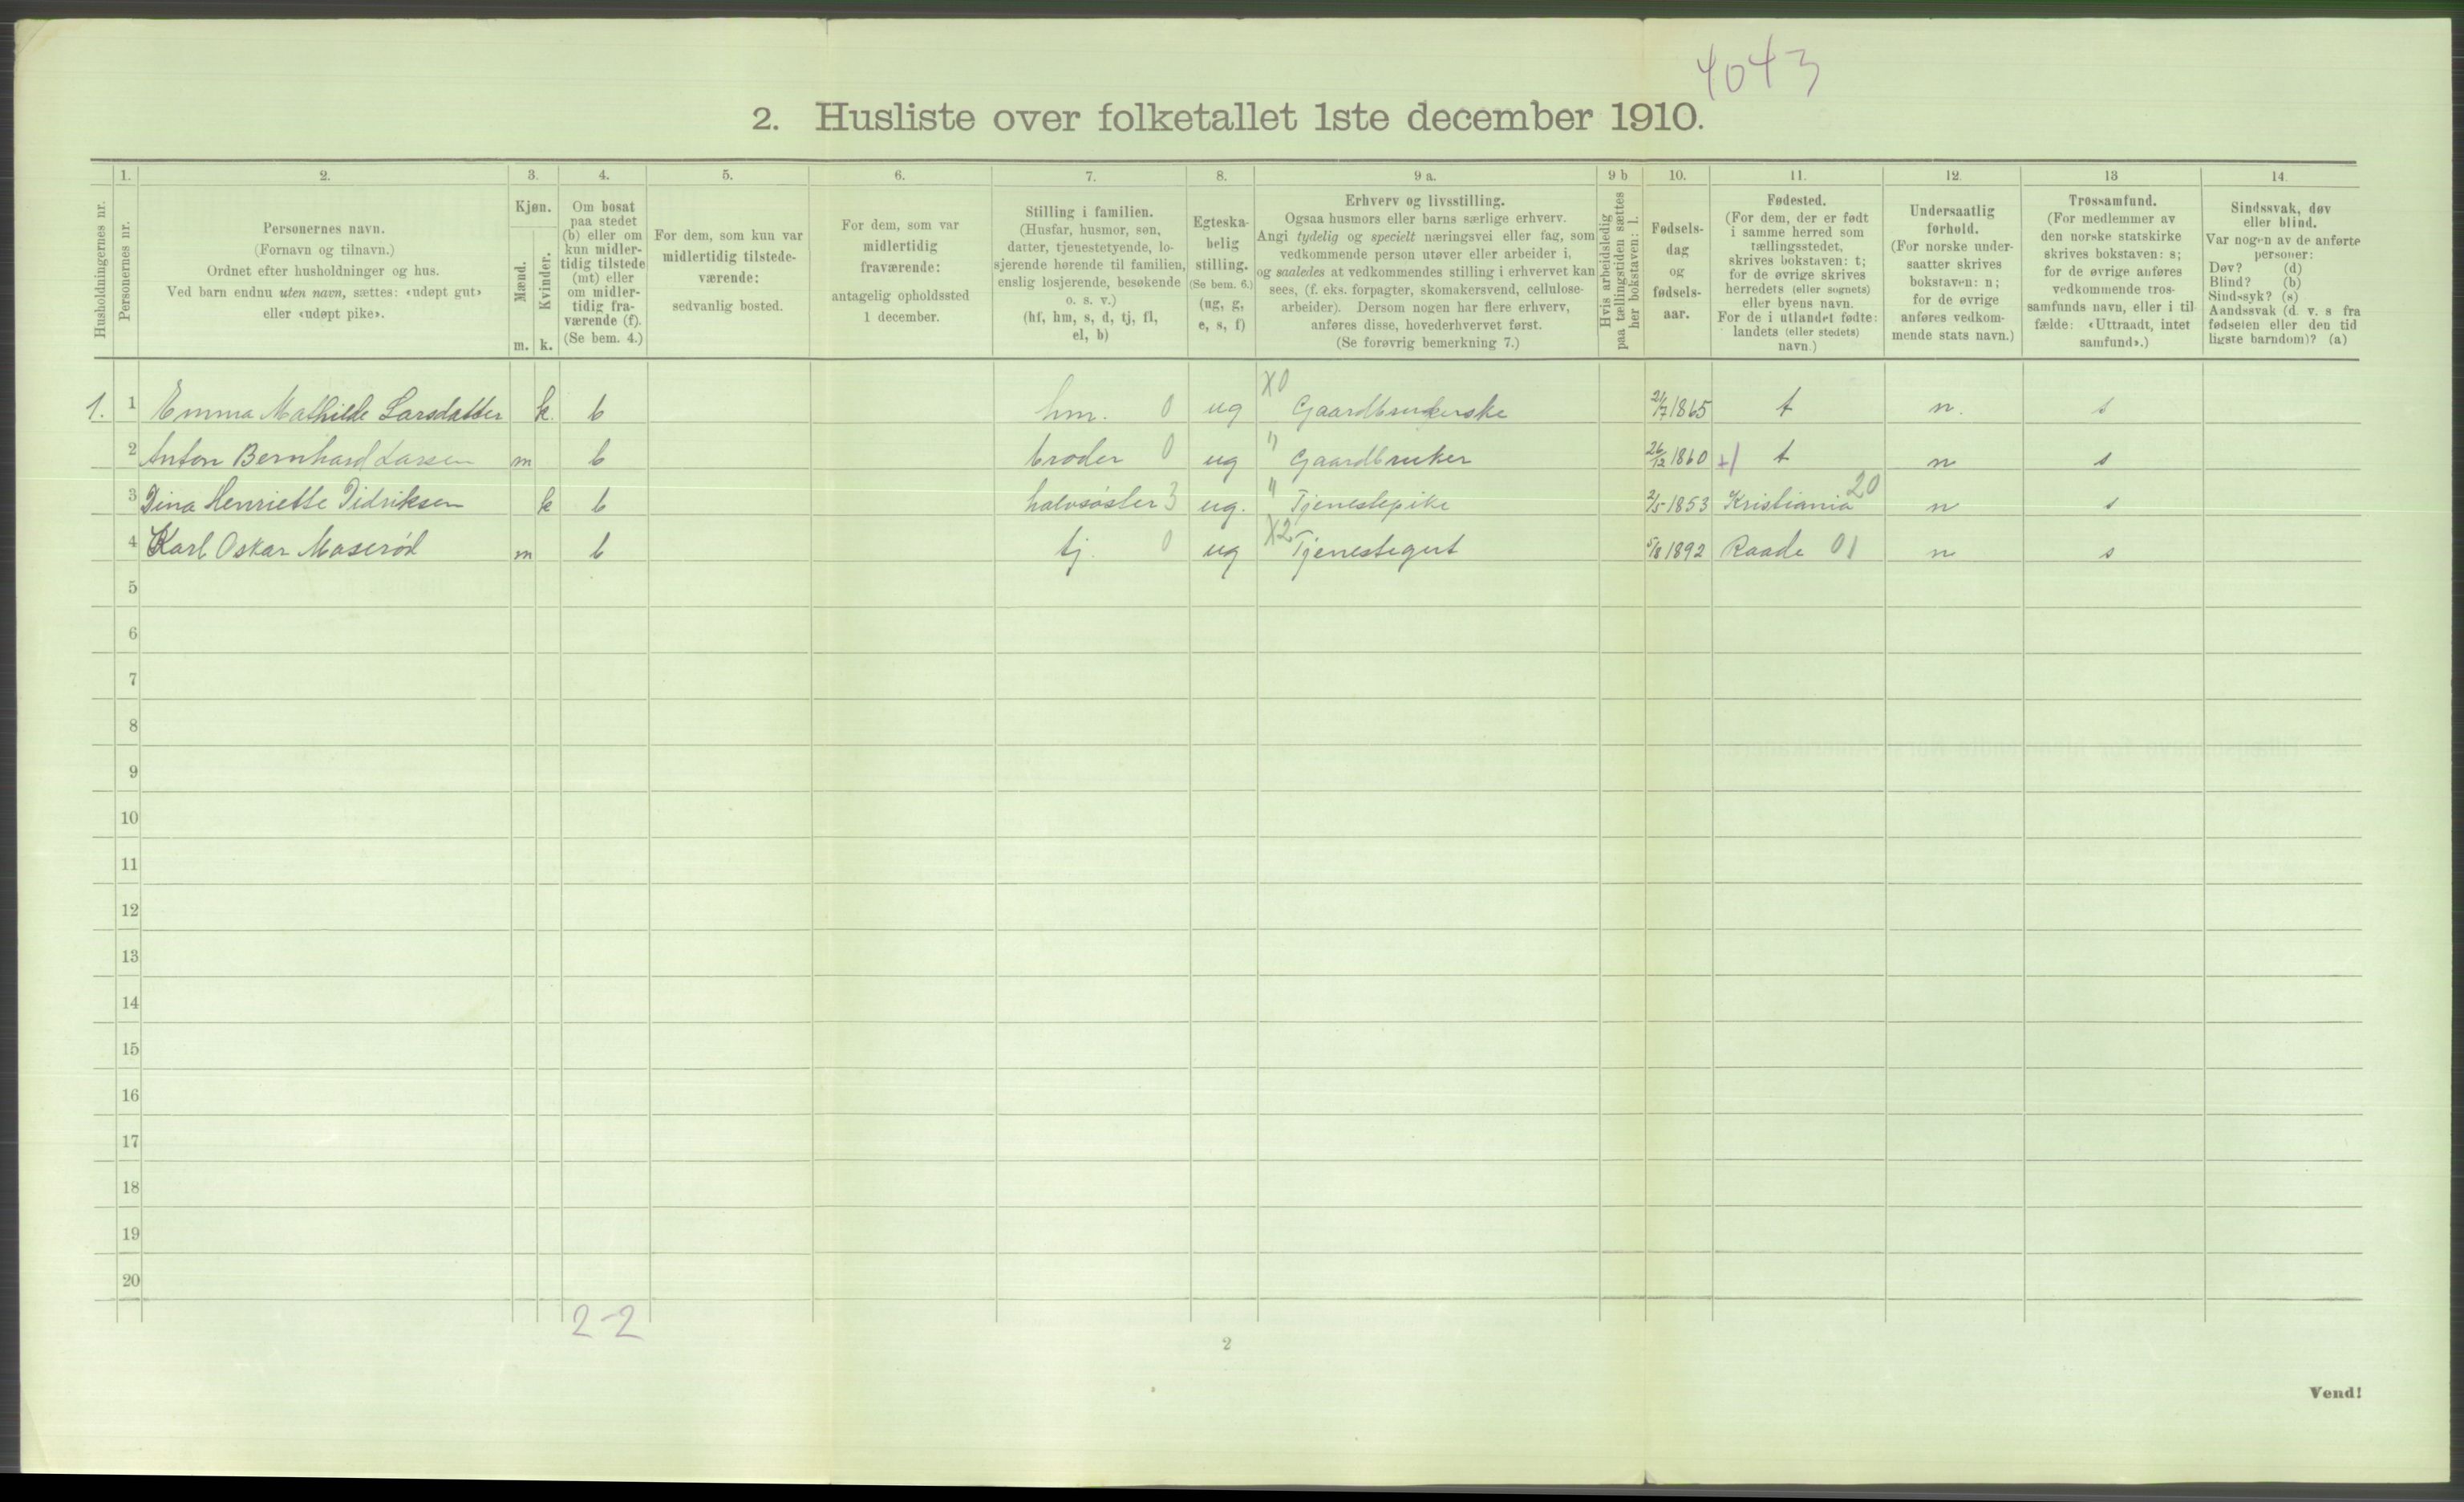 4043
2. Husliste over folketallet 1ste december 1910.
1. 2. 3. 4. 5. 6. 7. 8. 9 a. 9 b 10. 11. 12. 13 14.
Husholdningernes nr.
Personernes nr.
Personernes navn.
(Fornavn og tilnavn.)
Ordnet efter husholdninger og hus.
Ved barn endnu uten navn, sættes: «udøpt gut»
eller «udøpt pike».
Kjøn.
Mænd.
Kvinder.
m. k.
Om bosat
paa stedet
(b) eller om
kun midler-
tidig tilstede
(mt) eller
om midler-
tidig fra-
værende (f).
(Se bem. 4.)
For dem, som kun var
midlertidig tilstede-
værende:
sedvanlig bosted.
For dem, som var
midlertidig
fraværende:
antagelig opholdssted
1 december.
Stilling i familien.
(Husfar, husmor, søn,
datter, tjenestetyende, lo-
sjerende hørende til familien,
enslig losjerende, besøkende
o. s. v.)
(hf, hm, s, d, tj, fl,
el, b)
Egteska-
belig
stilling.
(Se bem. 6.)
(ug, g,
e, s, f)
Erhverv og livsstilling.
Ogsaa husmors eller barns særlige erhverv.
Angi tydelig og specielt næringsvei eller fag, som
vedkommende person utøver eller arbeider i,
og saaledes at vedkommendes stilling i erhvervet kan
sees, (f. eks. forpagter, skomakersvend, cellulose-
arbeider). Dersom nogen har flere erhverv,
anføres disse, hovederhvervet først.
(Se forøvrig bemerkning 7.)
Hvis arbeidsledig
paa tællingstiden sættes
her bokstaven: l.
Fødsels-
dag
og
fødsels-
aar.
Fødested.
(For dem, der er født
i samme herred som
tællingsstedet,
skrives bokstaven: t;
for de øvrige skrives
herredets (eller sognets)
eller byens navn.
For de i utlandet fødte:
landets (eller stedets)
navn.)
Undersaatlig
forhold.
(For norske under-
saatter skrives
bokstaven: n;
for de øvrige
anføres vedkom-
mende stats navn.)
Trossamfund.
(For medlemmer av
den norske statskirke
skrives bokstaven: s;
for de øvrige anføres
vedkommende tros-
samfunds navn, eller i til
fælde: «Uttraadt, intet
samfund».)
Sindssvak, døv
eller blind.
Var nogen av de anførte
personer:
Døv? (d)
Blind? (b)
Sindssyk? (s)
Aandssvak (d. v. s fra
fødselen eller den tid
ligste barndom)? (a)
1. 1 Emma Mathilde Larsdatter k. b hm. 0 ug X0 Gaardbrukerske 21/7 1865 t n. s
2 Anton Bernhard Larsen m b broder 0 ug " Gaardbruker 26/12 1860 +1 t n s
3 Dina Henriette Didriksen k b halvsøster 3 ug. " Tjenestepike 2/5 1853 Kristiania 20 n s
4 Karl Oskar Maserød m b tj. 0 ug X2 Tjenestegut 5/8 1892 Raade 01 n s
5
6
7
8
9
10
11
12
13
14
15
16
17
18
19
20
2-2
2
Vend!